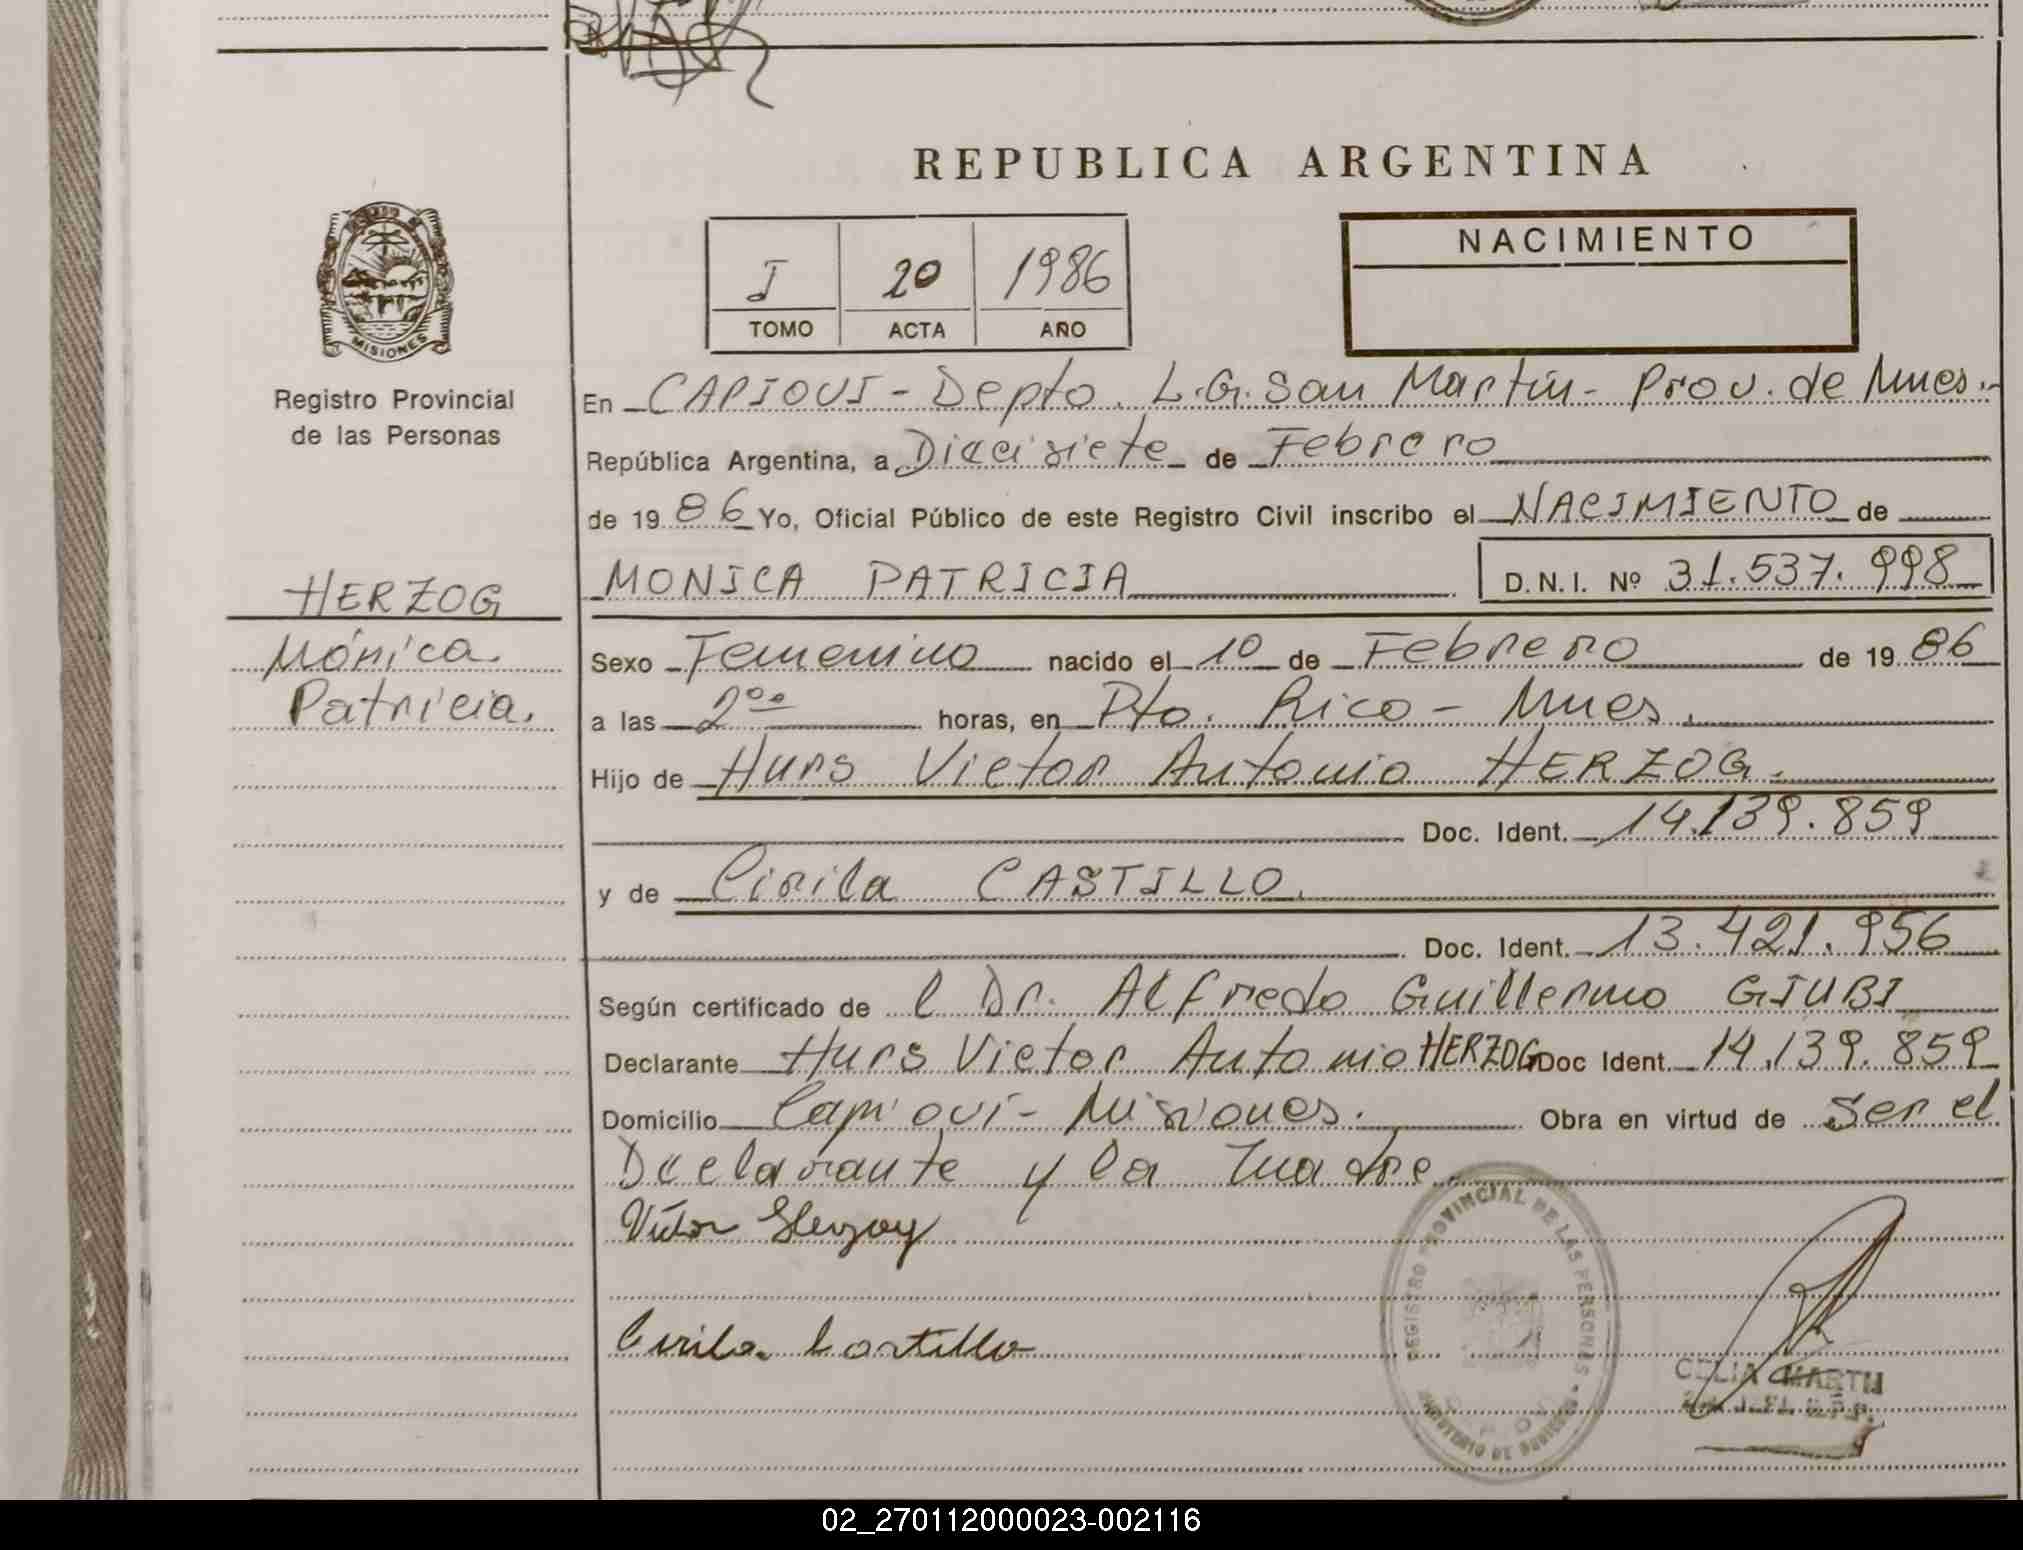 REPUBLICA ARGENTINA
I 20 1986
TOMO ACTA AÑO
NACIMIENTO
MISIONES
Registro Provincial
de las Personas
HERZOG
Mónica
Patricia.
En CAPIOVI - Depto. L.G. San Martín - Prov. de Mnes.
República Argentina, a Diecisiete de Febrero
de 1986 Yo, Oficial Público de este Registro Civil inscribo el NACIMIENTO de
MONICA PATRICIA D.N.I. Nº 31.537.998
Sexo Femenino nacido el 10 de Febrero de 1986
a las 2 horas, en Pto. Rico - Mnes.
Hijo de Hugo Victor Antonio HERZOG.
Doc. Ident. 14.139.859
y de Cirila CASTILLO.
Doc. Ident. 13.421.956
Según certificado de l Dr. Alfredo Guillermo GIUBI
Declarante Hugo Victor Antonio HERZOG Doc Ident. 14.139.859
Domicilio Capioví - Misiones. Obra en virtud de ser el
Declarante y la madre.
Víctor Herzog
Cirila Castillo
REGISTRO PROVINCIAL DE LAS PERSONAS
CELIA MARTI
02_270112000023-002116